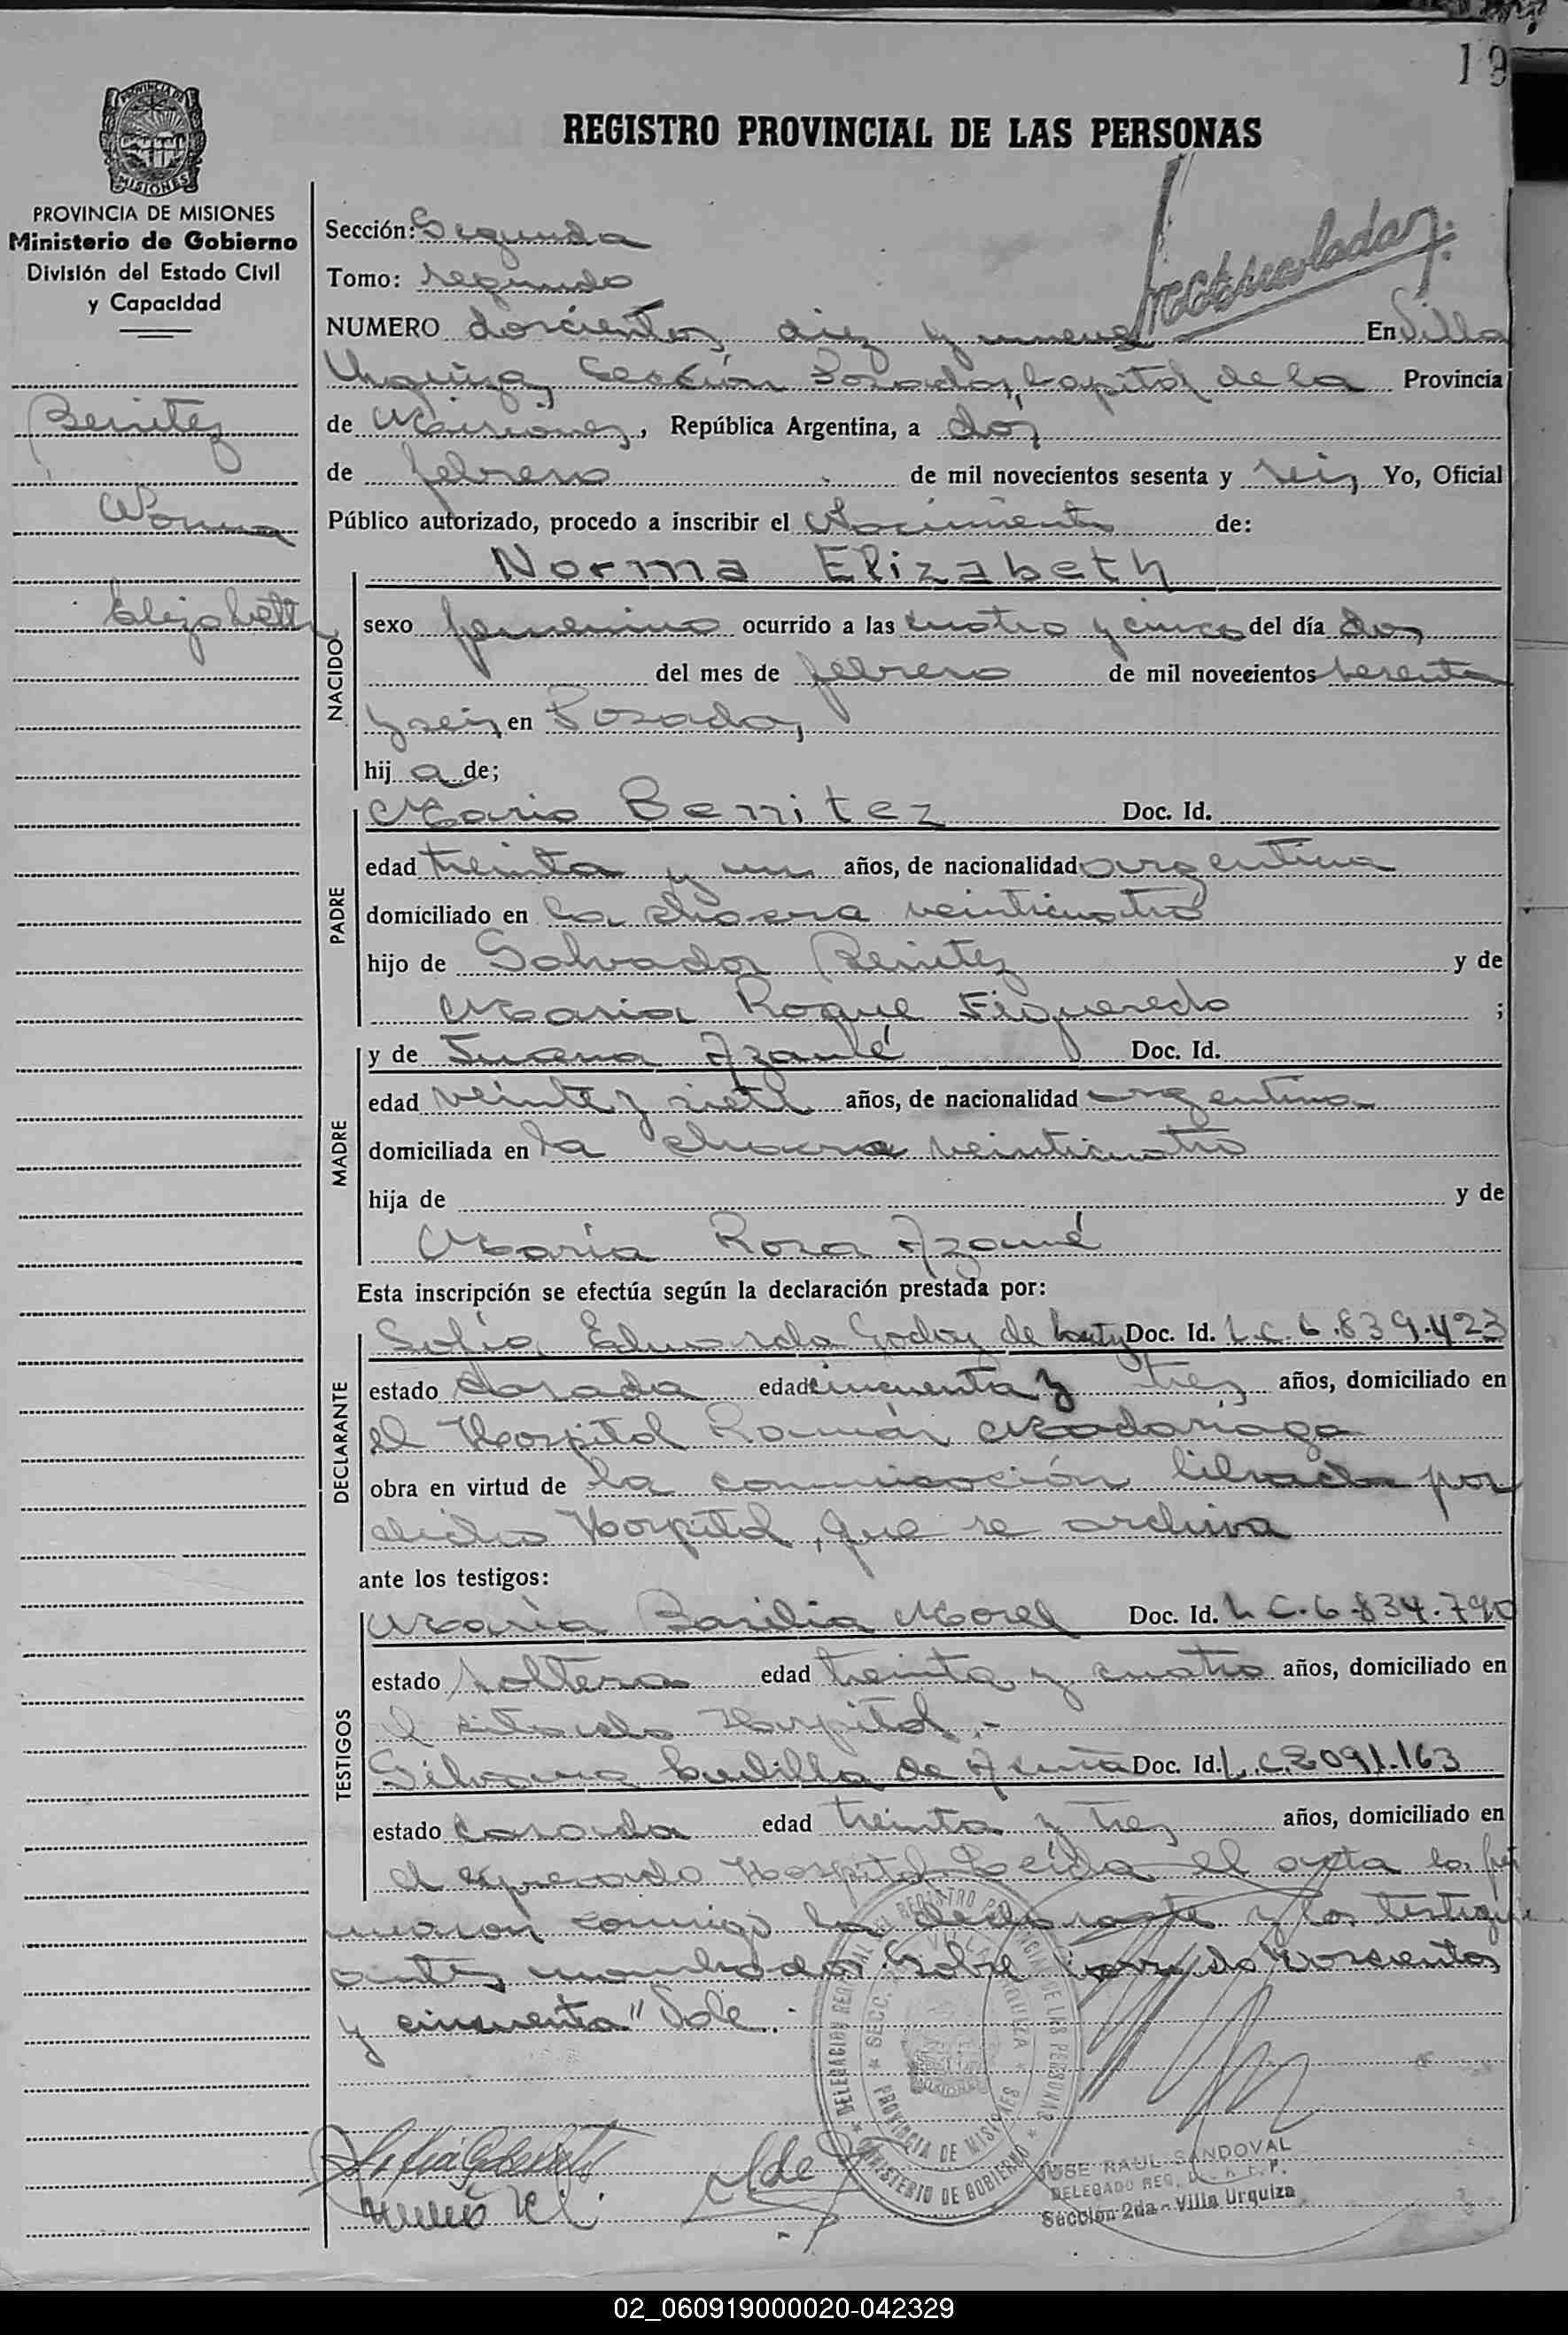 19
REGISTRO PROVINCIAL DE LAS PERSONAS
PROVINCIA DE MISIONES
MISIONES
PROVINCIA DE MISIONES
Ministerio de Gobierno
División del Estado Civil
y Capacidad
Benitez
Norma
Elizabeth
Sección: Segunda
Tomo: segundo
NUMERO doscientos diez y nueve En Villa
Urquiza, Sección Posadas, Capital de la Provincia
de Misiones, República Argentina, a dos
de febrero de mil novecientos sesenta y seis Yo, Oficial
Público autorizado, procedo a inscribir el Nacimiento de:
NACIDO
Norma Elizabeth
sexo femenino ocurrido a las cuatro y cinco del día dos
del mes de febrero de mil novecientos sesenta
y seis en Posadas
hij a de;
PADRE
Mario Benitez Doc. Id.
edad treinta y un años, de nacionalidad argentina
domiciliado en la chacra veinticuatro
hijo de Salvador Benitez y de
Maria Roque Figueredo ;
MADRE
y de Juana Doc. Id.
edad veinte y siete años, de nacionalidad argentina
domiciliada en la chacra veinticuatro
hija de y de
María Rosa
Esta inscripción se efectúa según la declaración prestada por:
DECLARANTE
Sofía Eduarda Godoy de Doc. Id. L.C. 6.839.423
estado casada edad cincuenta y tres años, domiciliado en
el Hospital Ramón Madariaga
obra en virtud de la comunicación librada por
dicho Hospital, que se archiva
ante los testigos:
TESTIGOS
María Basilia Morel Doc. Id. L.C. 6.834.790
estado soltera edad treinta y cuatro años, domiciliado en
el citado Hospital.-
Silvana de Doc. Id. L.C. 2091.163
estado casada edad treinta y tres años, domiciliado en
el expresado Hospital. Leída el acta la fir
maron conmigo la declarante y los testigos
antes nombrados. Sobre borrado "doscientos
y cincuenta" Vale.
DELEGACION REGISTRO PROVINCIAL DE LAS PERSONAS
SECC. VILLA URQUIZA
PROVINCIA DE MISIONES
MINISTERIO DE GOBIERNO
JOSE RAUL SANDOVAL
DELEGADO REG.
Sección 2da - Villa Urquiza
02_060919000020-042329